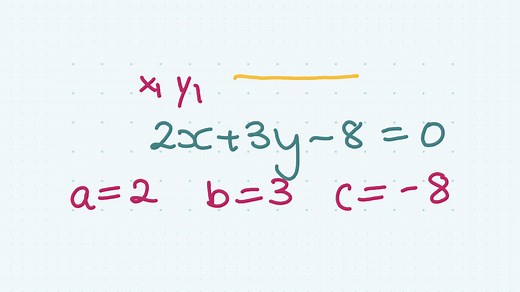 x₁ y₁
2x+3y-8=0
a=2 b=3 c=-8